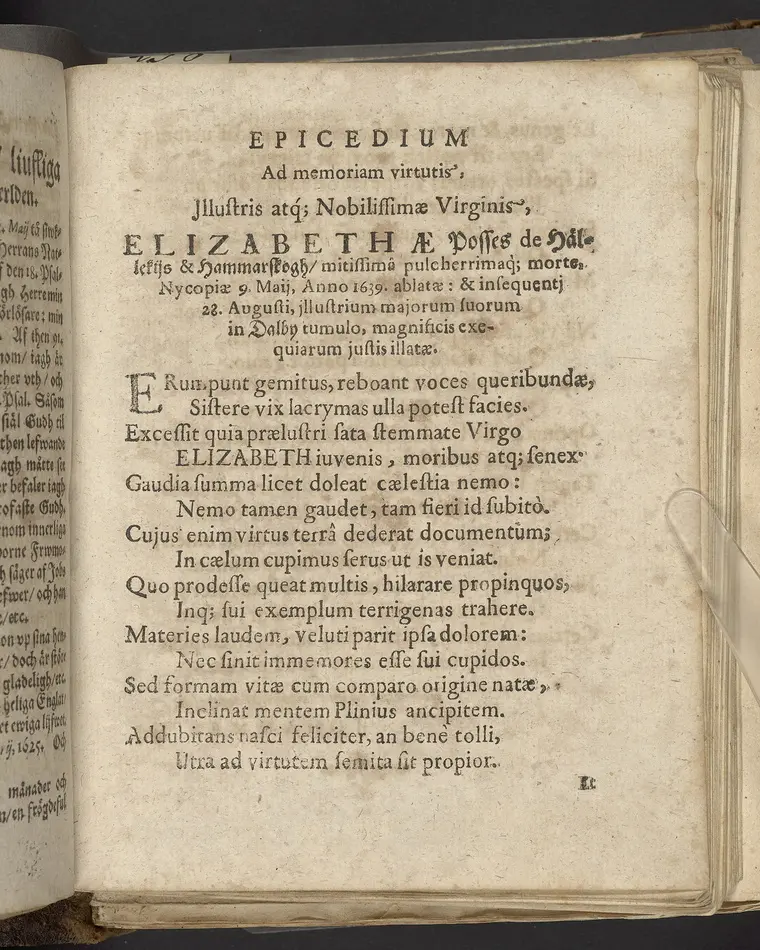 liuffliga
erlden.
Herrans Nat-
f den 18. Psal-
gh Herre min
örlösare; min
Af then ot.
nom/ iagh är
ther vth/ och
Psal. Såsom
siäl Gudh til
then lefwande
agh mätte see
r befaler iagh
rofaste Gudh.
nom innerliga
borne Frwmo-
h säger af Job.
efwer/ och han
e/etc.
on vp sina hen-
r/ doch är stör-
gladeligh/etc.
heliga Englar
et ewiga lijfwet
ij, 1625. Och
månader och
n/en frögdeful
EPICEDIUM
Ad memoriam virtutis,
Jlluſtris atq; Nobiliſſimæ Virginis,
ELIZABETHÆ Poſſes de Häl-
lekijs & Hammarſkogh/ mitiſſimâ pulcherrimaq; morte,
Nycopiæ 9. Maij, Anno 1639. ablatæ: & inſequentj
28. Auguſti, jlluſtrium majorum ſuorum
in Dalby tumulo, magnificis exe-
quiarum juſtis illatæ.
ERumpunt gemitus, reboant voces queribundæ,
Siſtere vix lacrymas ulla poteſt facies.
Exceſſit quia præluſtri ſata ſtemmate Virgo
ELIZABETH iuvenis, moribus atq; ſenex.
Gaudia ſumma licet doleat cæleſtia nemo:
Nemo tamen gaudet, tam fieri id ſubitò.
Cujus enim virtus terrâ dederat documentum;
In cælum cupimus ſerus ut is veniat.
Quo prodeſſe queat multis, hilarare propinquos,
Inq; ſui exemplum terrigenas trahere.
Materies laudem, veluti parit ipſa dolorem:
Nec ſinit immemores eſſe ſui cupidos.
Sed formam vitæ cum comparo origine natæ,
Inclinat mentem Plinius ancipitem.
Addubitans naſci feliciter, an benè tolli,
Utra ad virtutem ſemita ſit propior.